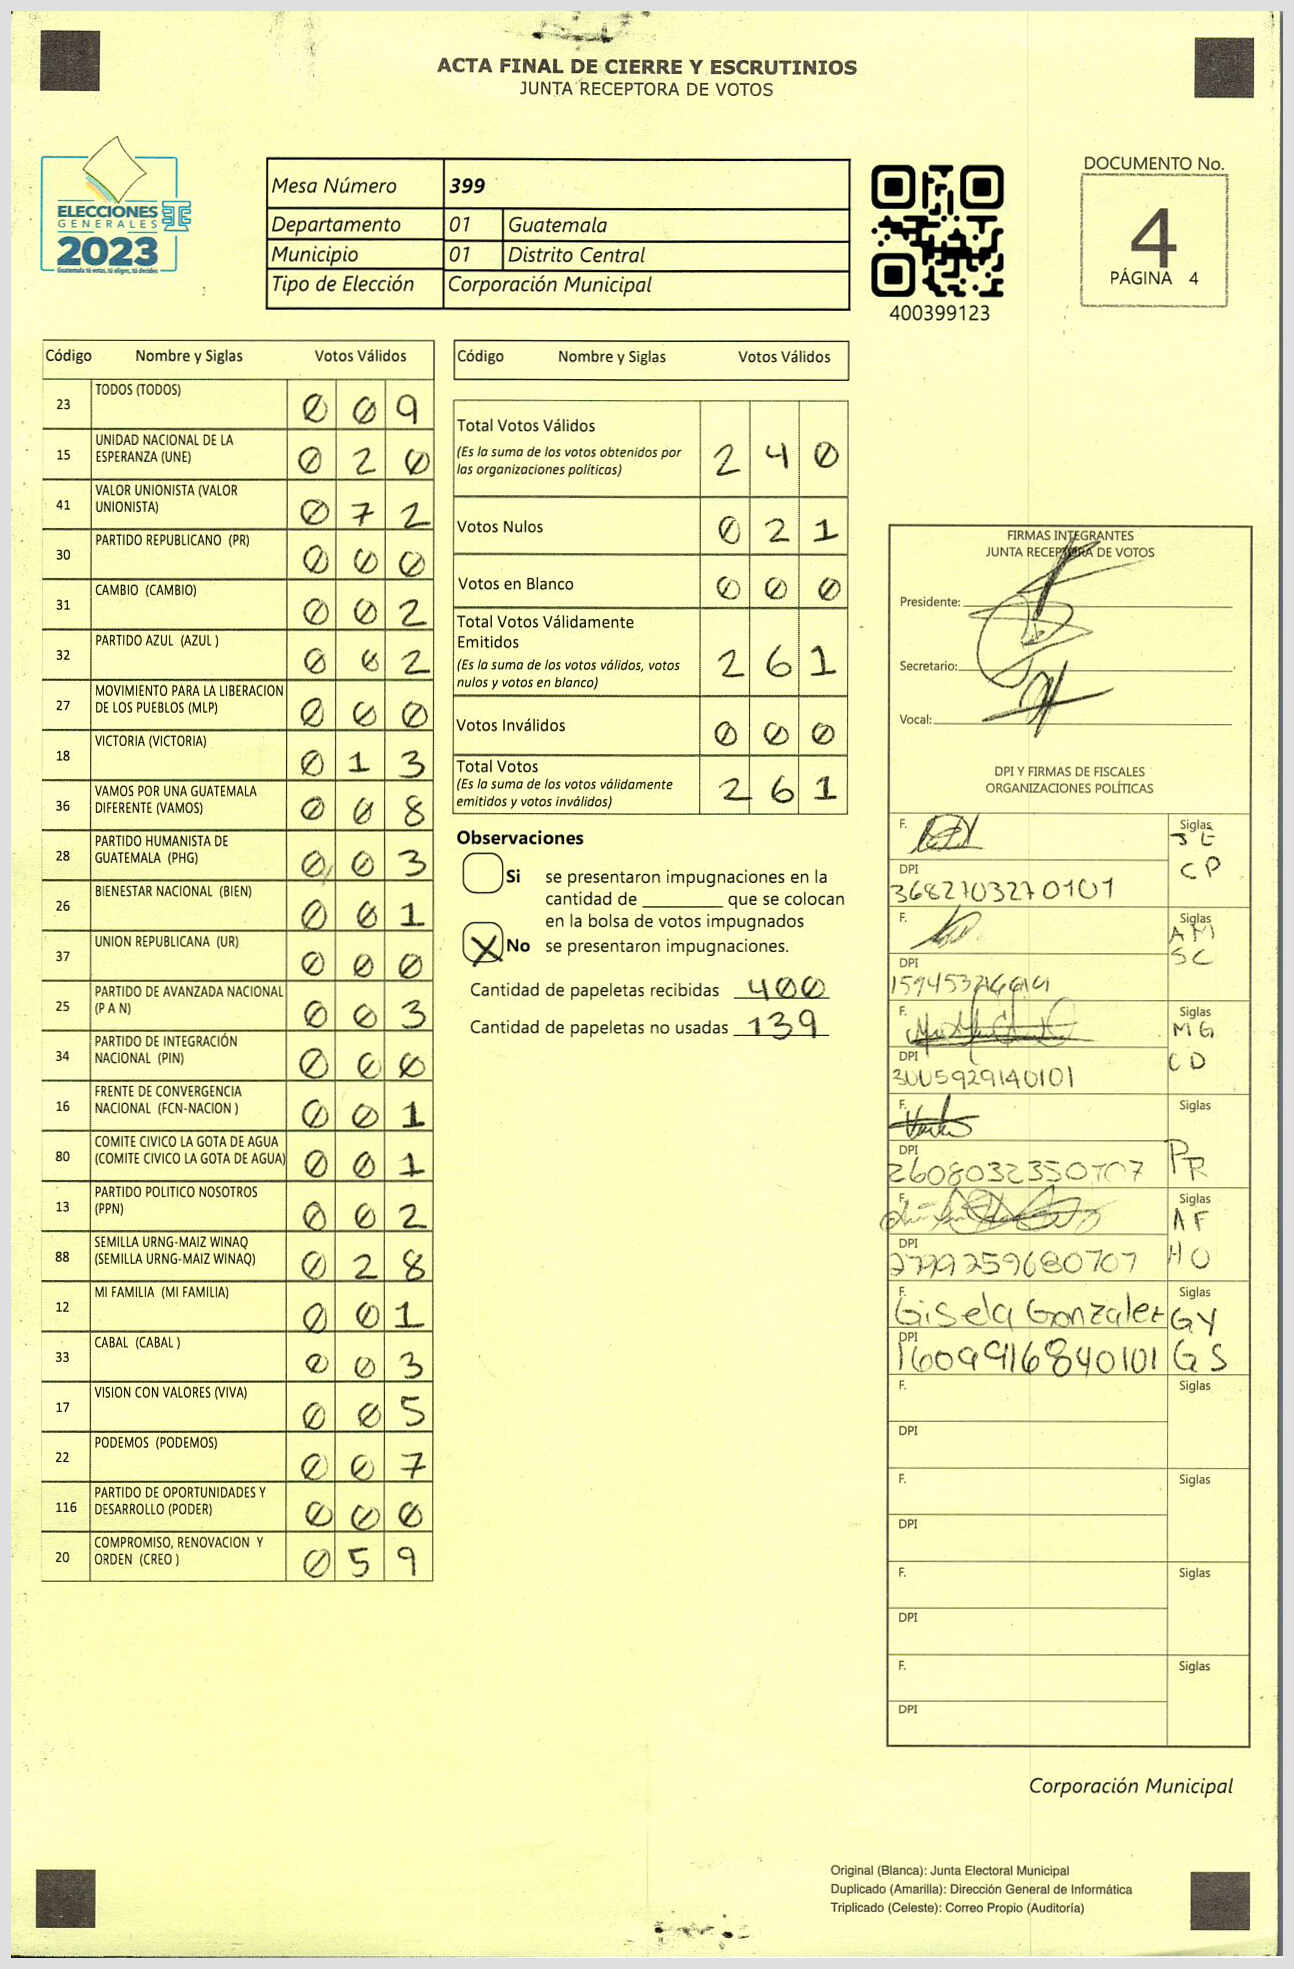 ACTA FINAL DE CIERRE Y ESCRUTINIOS
JUNTA RECEPTORA DE VOTOS
ELECCIONES
GENERALES
2023
Guatemala tú votas, tú eliges, tú decides
Mesa Número 399
Departamento 01 Guatemala
Municipio 01 Distrito Central
Tipo de Elección Corporación Municipal
400399123
DOCUMENTO No.
4
PÁGINA 4
Código Nombre y Siglas Votos Válidos
23 TODOS (TODOS) 0 0 9
15 UNIDAD NACIONAL DE LA
ESPERANZA (UNE) 0 2 0
41 VALOR UNIONISTA (VALOR
UNIONISTA) 0 7 2
30 PARTIDO REPUBLICANO (PR) 0 0 0
31 CAMBIO (CAMBIO) 0 0 2
32 PARTIDO AZUL (AZUL ) 0 0 2
27 MOVIMIENTO PARA LA LIBERACION
DE LOS PUEBLOS (MLP) 0 0 0
18 VICTORIA (VICTORIA) 0 1 3
36 VAMOS POR UNA GUATEMALA
DIFERENTE (VAMOS) 0 0 8
28 PARTIDO HUMANISTA DE
GUATEMALA (PHG) 0 0 3
26 BIENESTAR NACIONAL (BIEN) 0 0 1
37 UNION REPUBLICANA (UR) 0 0 0
25 PARTIDO DE AVANZADA NACIONAL
(P A N) 0 0 3
34 PARTIDO DE INTEGRACIÓN
NACIONAL (PIN) 0 0 0
16 FRENTE DE CONVERGENCIA
NACIONAL (FCN-NACION ) 0 0 1
80 COMITE CIVICO LA GOTA DE AGUA
(COMITE CIVICO LA GOTA DE AGUA) 0 0 1
13 PARTIDO POLITICO NOSOTROS
(PPN) 0 0 2
88 SEMILLA URNG-MAIZ WINAQ
(SEMILLA URNG-MAIZ WINAQ) 0 2 8
12 MI FAMILIA (MI FAMILIA) 0 0 1
33 CABAL (CABAL ) 0 0 3
17 VISION CON VALORES (VIVA) 0 0 5
22 PODEMOS (PODEMOS) 0 0 7
116 PARTIDO DE OPORTUNIDADES Y
DESARROLLO (PODER) 0 0 0
20 COMPROMISO, RENOVACION Y
ORDEN (CREO ) 0 5 9
Código Nombre y Siglas Votos Válidos
Total Votos Válidos
(Es la suma de los votos obtenidos por
las organizaciones políticas) 2 4 0
Votos Nulos 0 2 1
Votos en Blanco 0 0 0
Total Votos Válidamente
Emitidos
(Es la suma de los votos válidos, votos
nulos y votos en blanco) 2 6 1
Votos Inválidos 0 0 0
Total Votos
(Es la suma de los votos válidamente
emitidos y votos inválidos) 2 6 1
Observaciones
Si se presentaron impugnaciones en la
cantidad de ________ que se colocan
en la bolsa de votos impugnados
X No se presentaron impugnaciones.
Cantidad de papeletas recibidas 400
Cantidad de papeletas no usadas 139
FIRMAS INTEGRANTES
JUNTA RECEPTORA DE VOTOS
Presidente:
Secretario:
Vocal:
DPI Y FIRMAS DE FISCALES
ORGANIZACIONES POLÍTICAS
F. Siglas
JE
CP
DPI
3682703270101
F. Siglas
AM
SC
DPI
F. Siglas
MG
CD
DPI
3005929140101
F. Siglas
PR
DPI
2608032350707
F. Siglas
AF
HO
DPI
F. Siglas
Gisela Gonzalez GY
GS
DPI
1609916840101
F. Siglas
DPI
F. Siglas
DPI
F. Siglas
DPI
F. Siglas
DPI
Corporación Municipal
Original (Blanca): Junta Electoral Municipal
Duplicado (Amarilla): Dirección General de Informática
Triplicado (Celeste): Correo Propio (Auditoría)